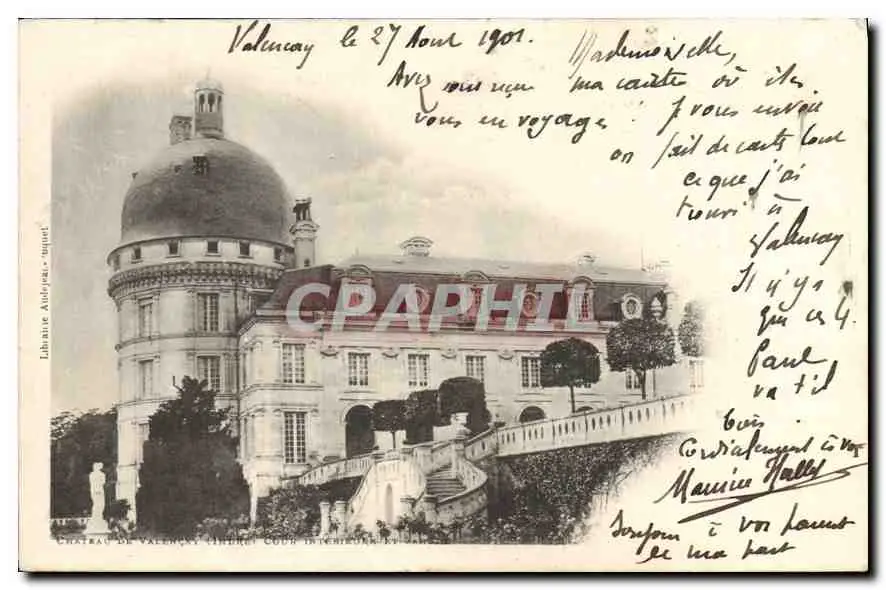 Valençay le 27 Aout 1901.
Mademoiselle,
Avez vous reçu ma carte où êtes
vous en voyage? Je vous envoie
on fait de cartes tout
ce que j'ai
trouvé à
Valençay
Il n'y a
que ces 4.
Paul
va t'il
bien
Cordialement à vous
Maurice
Bonjour à vos parent
de ma part
Librairie
CHATEAU DE VALENÇAY (INDRE) COUR INTÉRIEURE ET
CPARAMAPHIL